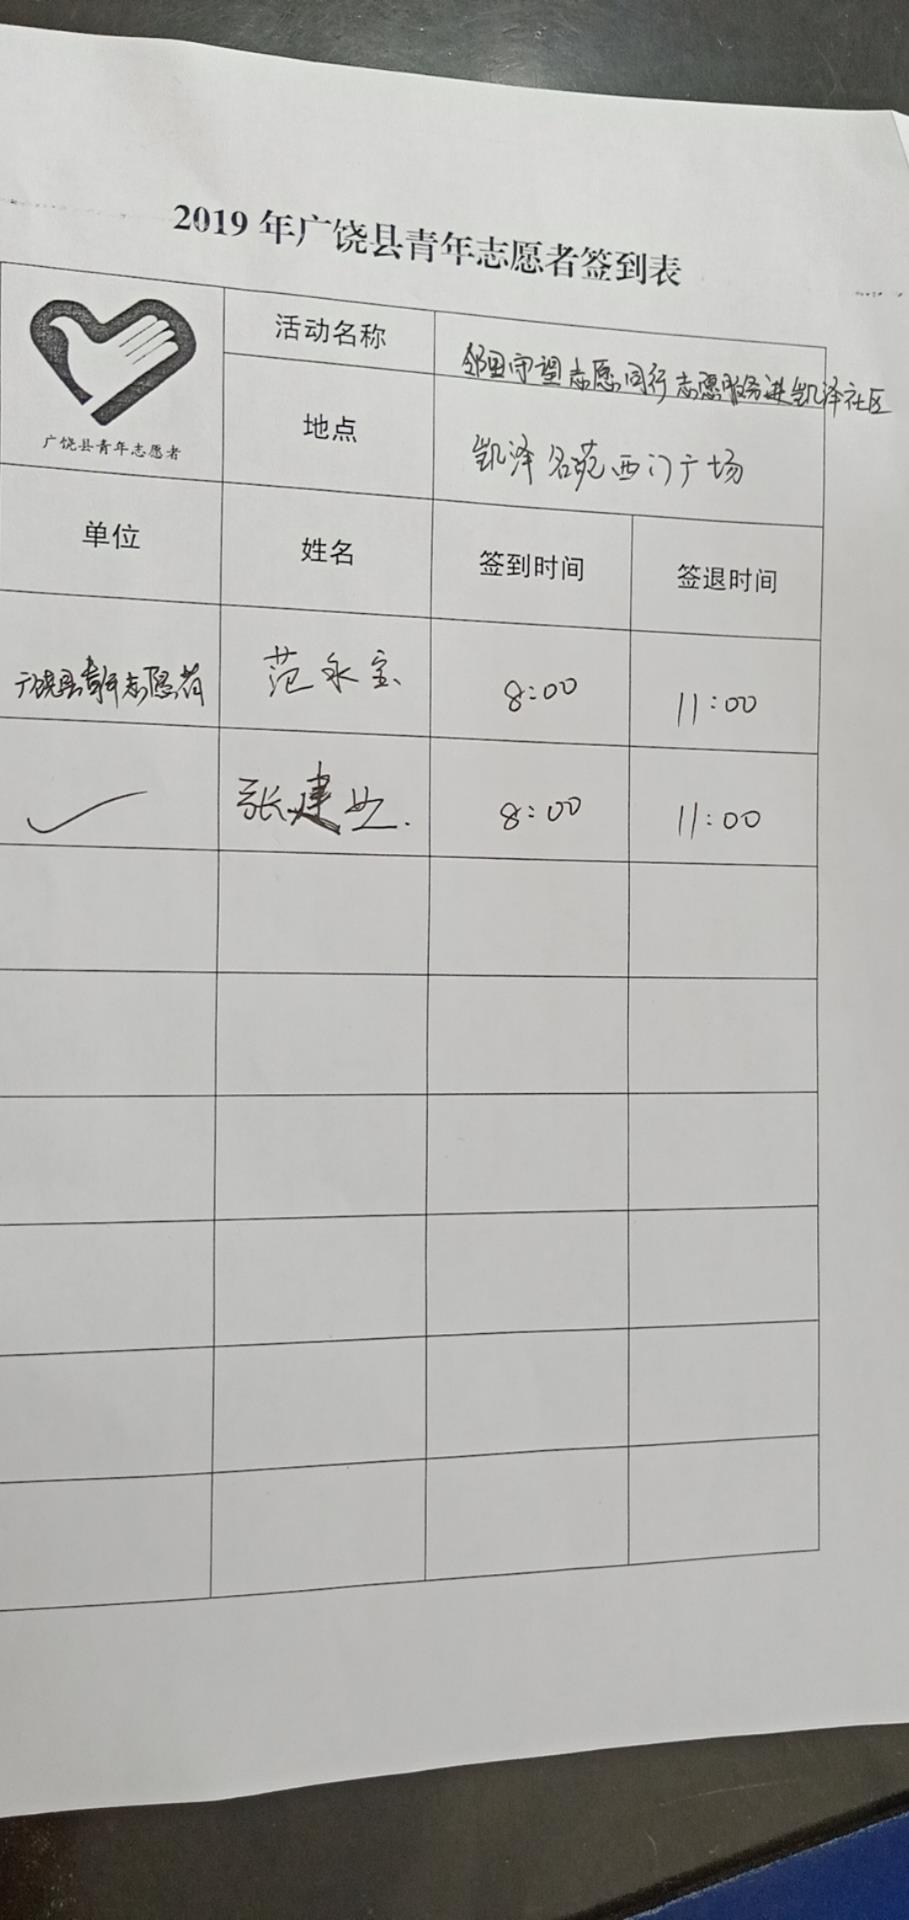 2019年广饶县青年志愿者签到表
广饶县青年志愿者
活动名称 邻里守望志愿同行志愿服务进凯泽社区
地点 凯泽名苑西门广场
单位 姓名 签到时间 签退时间
广饶县青年志愿者 范永宝 8:00 11:00
张建业. 8:00 11:00